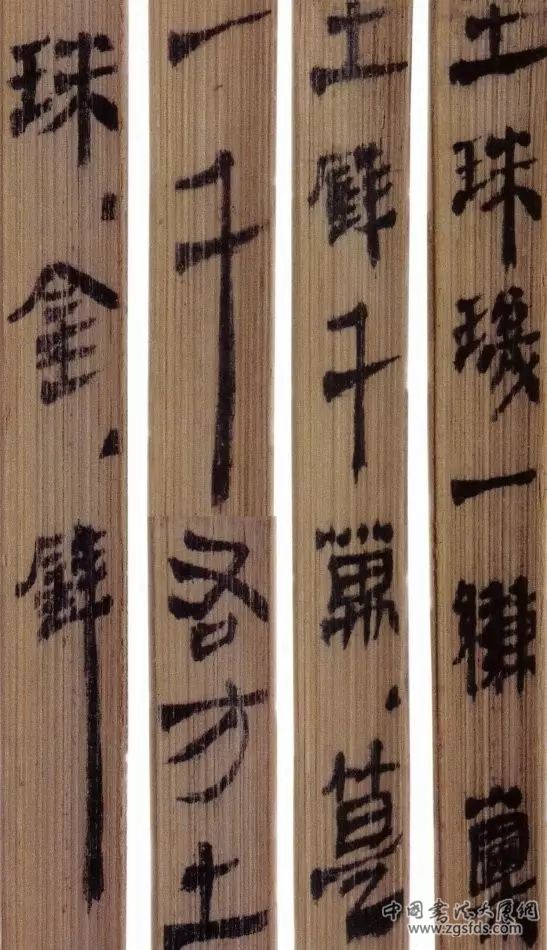 土珠璣一縑囊
土錢千萬
一千
右方土
珠金錢
中国书法大展网
www.zgsfds.com